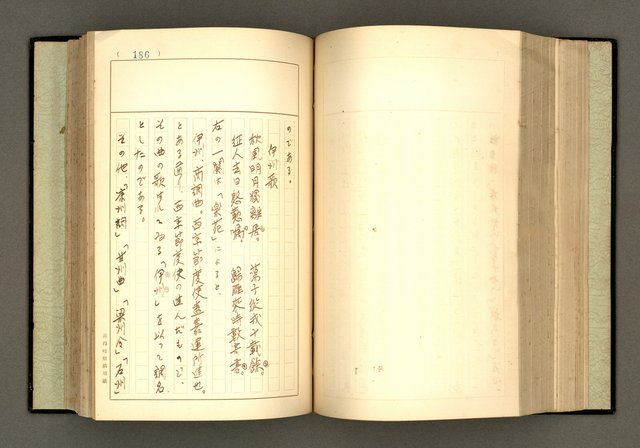 ( 186 )
のである。
伊州歌
秋風明月獨離居。 蕩子從戎十載餘。
征人去日慇懃囑。 歸雁來時數寄書。
右の一闋は「樂苑」によると、
伊州、商調曲。西京節度使蓋嘉運所進也。
とある通り、西京節度使の進んだもので、
その曲の歌はすべて「伊州」を以つて
としたのである。
その他「凉州詞」「甘州曲」「梁州令」「石州」